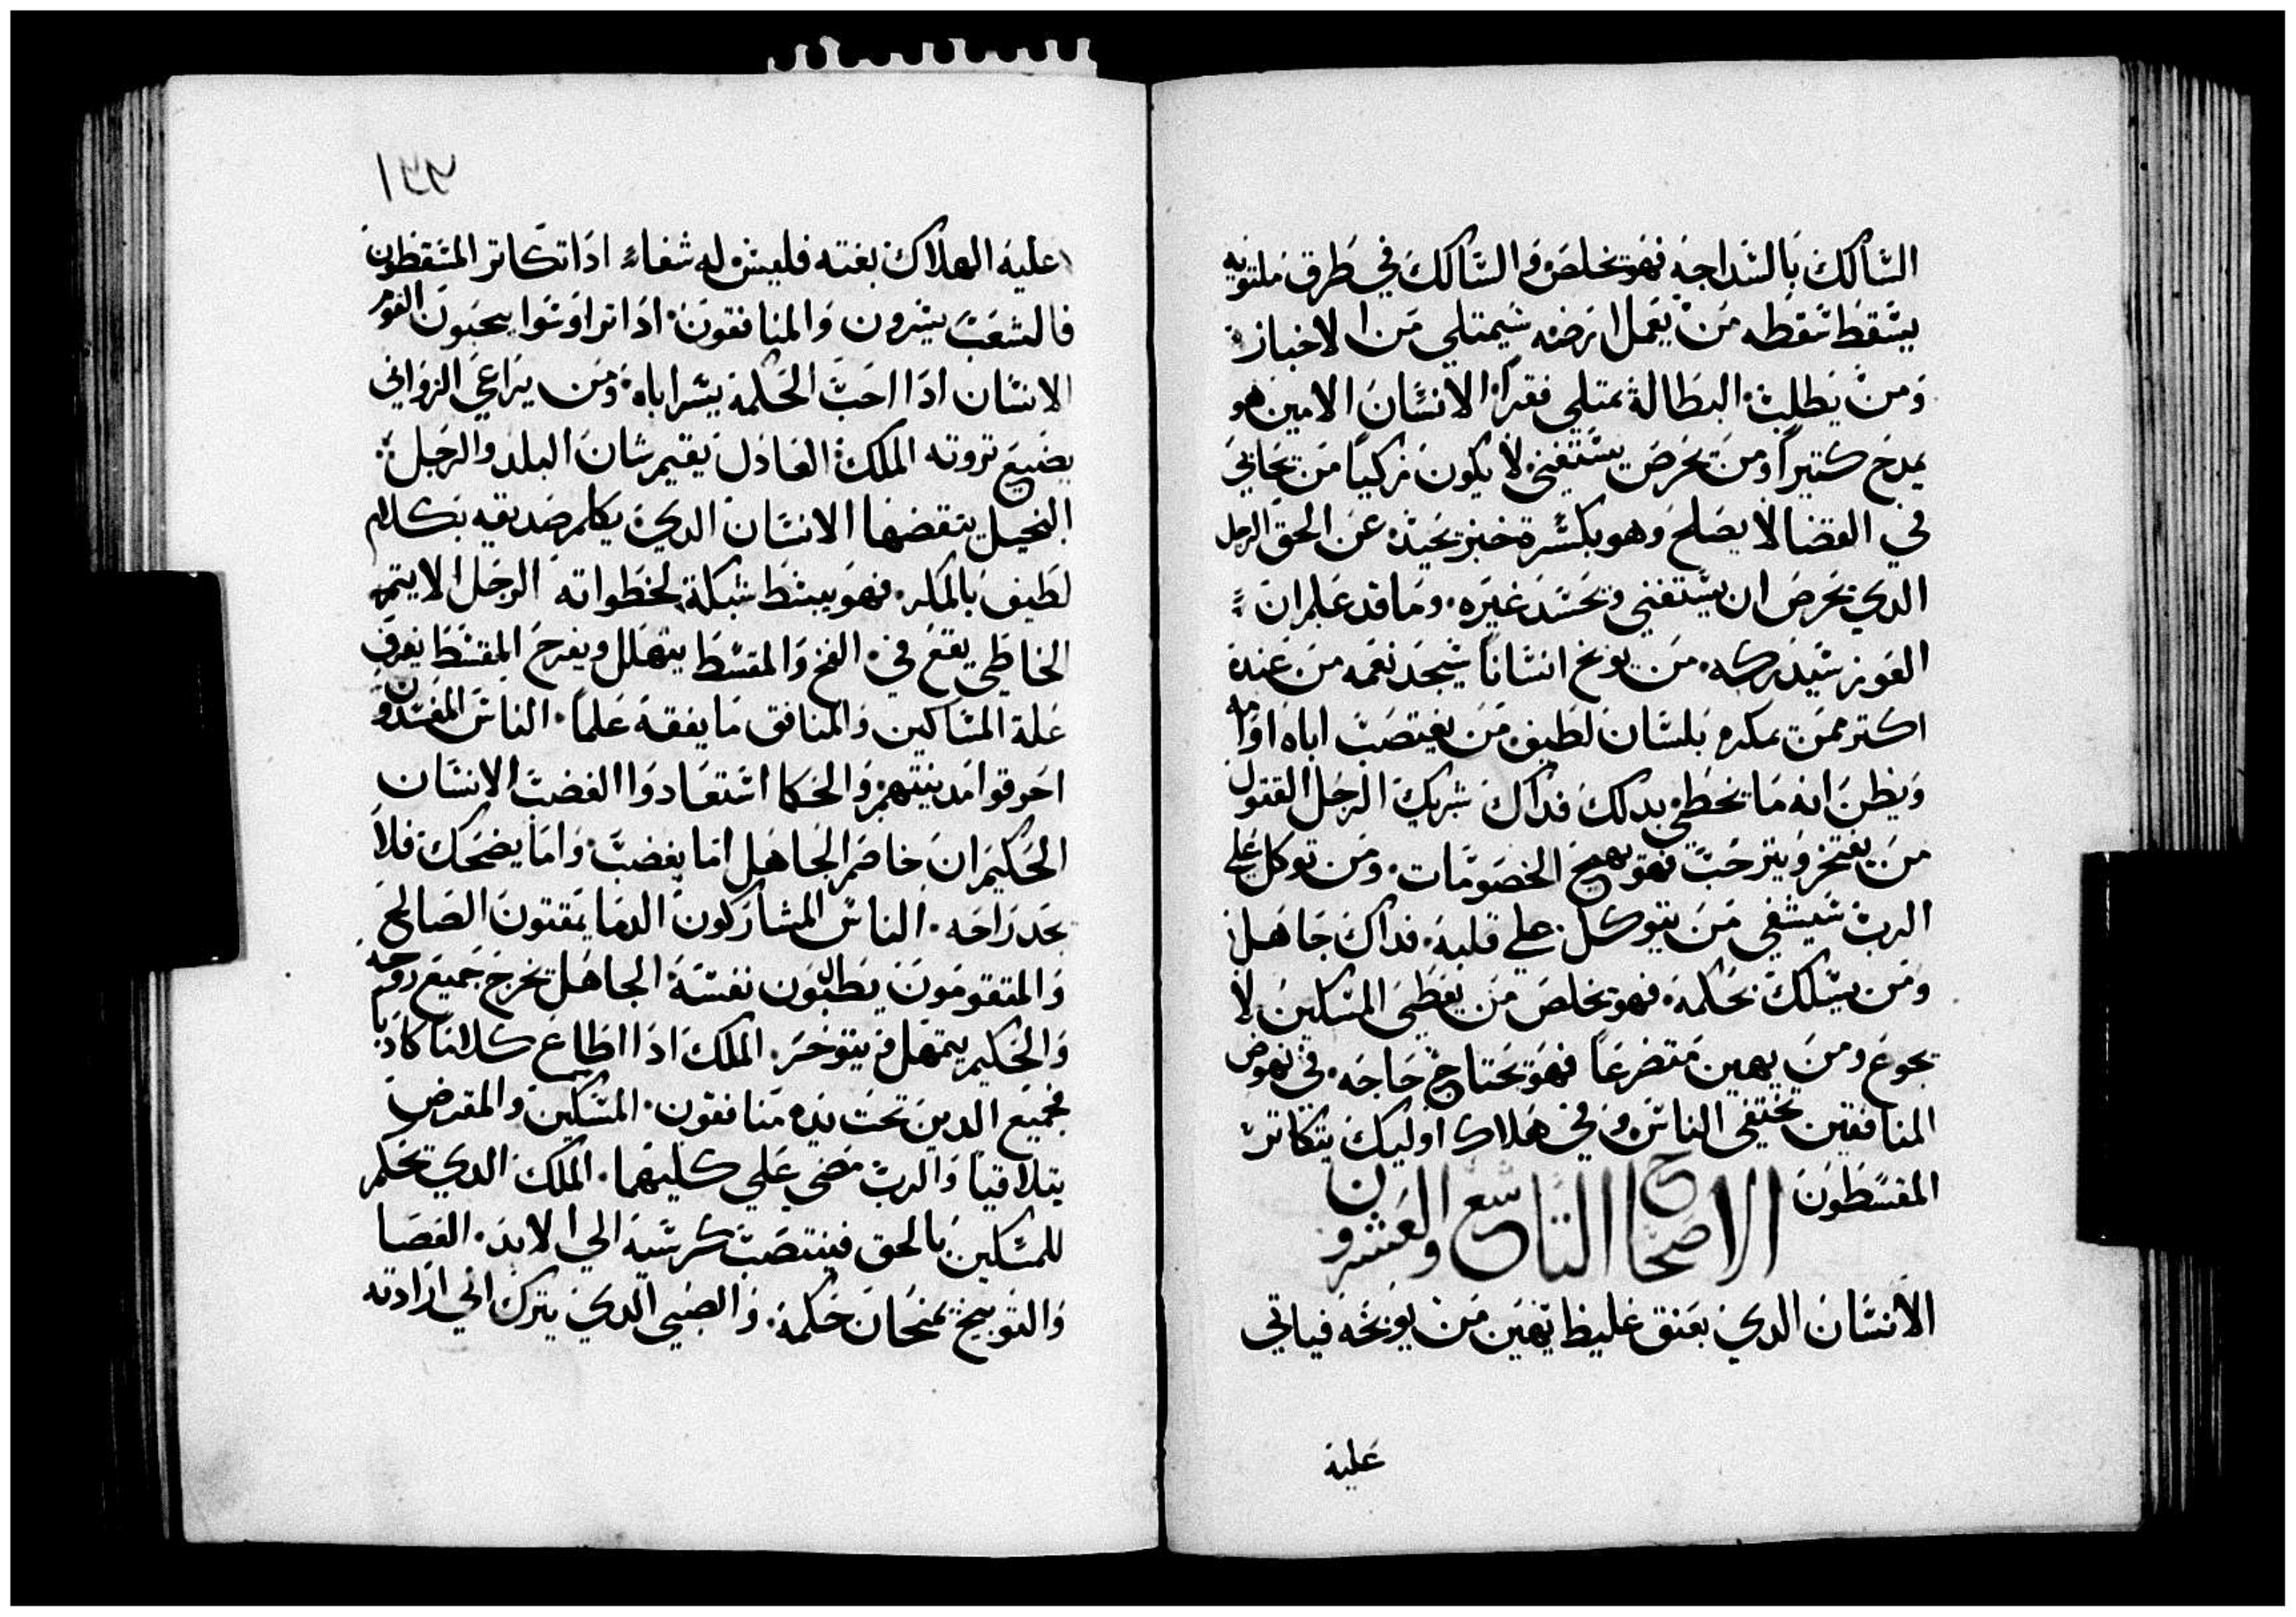 السالك بالسداجه فهو يخلص والسالك في طرق ملتويه
يسقط سقطه من يعمل ارضه سيمتلي من الاخباز
ومن يطلب البطالة يمتلي فقراً الانسان الامين هو
يمدح كتيراً ومن يحرص يستغني لا يكون زكياً من يحابي
في القضا لا يصلح وهو بكسرة خبز يحيد عن الحق الرجل
الدي يحرص ان يستغني ويحسد غيره وما قد علم ان
العوز سيدركه من يوبخ انساناً سيجد نعمه من عنده
اكتر ممن يمكره بلسان لطيف من يغتصب اباه او امه
ويظن انه ما يخطي بدلك فداك شريك الرجل القتول
من يفتخر ويترحب فهو يهيج الخصومات ومن توكل علي
الرب سيشفي من يتوكل علي قلبه فداك جاهل
ومن يسلك بحكمة فهو يخلص من يعطي المسكين لا
يجوع ومن يهين متضرعاً فهو يحتاج حاجه في نهوض
المنافقين يختفي الناس وفي هلاك اوليك يتكاتر
المقسطون
الاصحاح التاسع والعشرون
الانسان الدي بعنق غليظ يهين من يوبخه فياتي
عليه
١٣٢
عليه الهلاك بغته فليس له شفاءً ادا تكاتر المقسطون
فالشعب يسرون والمنافقون ادا تراوسوا يحبون القوم
الانسان ادا احب الحكمة يسر اباه ومن يراعي الزواني
يضيع تروته الملك العادل يقيم شان البلد والرجل
البخيل ينقضها الانسان الدي يكلم صديقه بكلام
لطيف بالمكر فهو يبسط شبكة لخطواته الرجل الايتم
الخاطي يقع في الفخ والمقسط يتهلل ويفرح المقسط يعرف
علة المساكين والمنافق ما يفقه علماً الناس المفسدون
احرقوا مدينتهم والحكما استعادوا الغضب الانسان
الحكيم ان خاصم الجاهل اما يغضب واما يضحك فلا
يجد راحه الناس المشاركون الدما يمقتون الصالح
والمتقومون يطلبون نفسه الجاهل يخرج جميع روحه
والحكيم يتمهل ويتوخر الملك ادا اطاع كلاما كادبا
فجميع الدين تحت يده منافقون المسكين والمقرض
يتلاقيا والرب مضي علي كليهما الملك الدي يحكم
للمسكين بالحق فينتصب كرسيه الي الابد العصا
والتوبيخ يمنحان حكمة والصبي الدي يترك الي ارادته